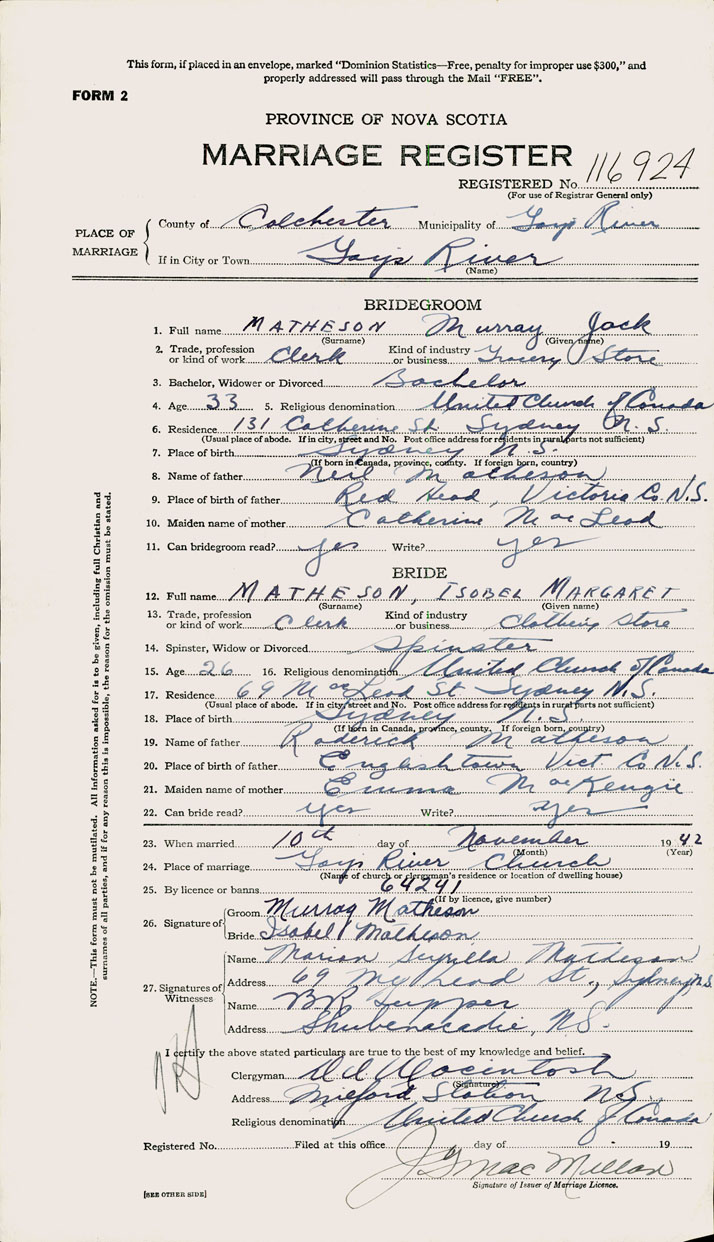 This form, if placed in an envelope, marked "Dominion Statistics—Free, penalty for improper use $300," and
properly addressed will pass through the Mail "FREE".
FORM 2
PROVINCE OF NOVA SCOTIA
MARRIAGE REGISTER
REGISTERED No. 116924
(For use of Registrar General only)
PLACE OF MARRIAGE
County of Colchester Municipality of Gays River
If in City or Town Gays River
(Name)
BRIDEGROOM
1. Full name MATHESON Murray Jack
(Surname) (Given name)
2. Trade, profession or kind of work Clerk Kind of industry or business Grocery Store
3. Bachelor, Widower or Divorced Bachelor
4. Age 33 5. Religious denomination United Church of Canada
6. Residence 131 Catherine St. Sydney N.S.
(Usual place of abode. If in city, street and No. Post office address for residents in rural parts not sufficient)
7. Place of birth Sydney N.S.
(If born in Canada, province, county. If foreign born, country)
8. Name of father Neil Matheson
9. Place of birth of father Red Head, Victoria Co. N.S.
10. Maiden name of mother Catherine MacLeod
11. Can bridegroom read? yes Write? yes
BRIDE
12. Full name MATHESON, ISOBEL MARGARET
(Surname) (Given name)
13. Trade, profession or kind of work Clerk Kind of industry or business Clothing Store
14. Spinster, Widow or Divorced Spinster
15. Age 26 16. Religious denomination United Church of Canada
17. Residence 69 MacLeod St Sydney N.S.
(Usual place of abode. If in city, street and No. Post office address for residents in rural parts not sufficient)
18. Place of birth Sydney N.S.
(If born in Canada, province, county. If foreign born, country)
19. Name of father Roderick Matheson
20. Place of birth of father Englishtown Vict Co. N.S.
21. Maiden name of mother Emma MacKenzie
22. Can bride read? yes Write? yes
23. When married 10th day of November 1942
(Month) (Year)
24. Place of marriage Gays River Church
(Name of church or clergyman's residence or location of dwelling house)
25. By licence or banns 64241
(If by licence, give number)
26. Signature of
Groom Murray Matheson
Bride Isobel Matheson
27. Signatures of Witnesses
Name Marion Matheson
Address 69 McLeod St., Sydney, N.S.
Name BR Tupper
Address Shubenacadie, N.S.
I certify the above stated particulars are true to the best of my knowledge and belief.
Clergyman Macintosh
(Signature)
Address Milford Station N.S.
Religious denomination United Church of Canada
Registered No. Filed at this office day of 19
MacMillan
Signature of Issuer of Marriage Licence.
[SEE OTHER SIDE]
NOTE.—This form must not be mutilated. All information asked for is to be given, including full Christian and
surnames of all parties, and if for any reason this is impossible, the reason for the omission must be stated.